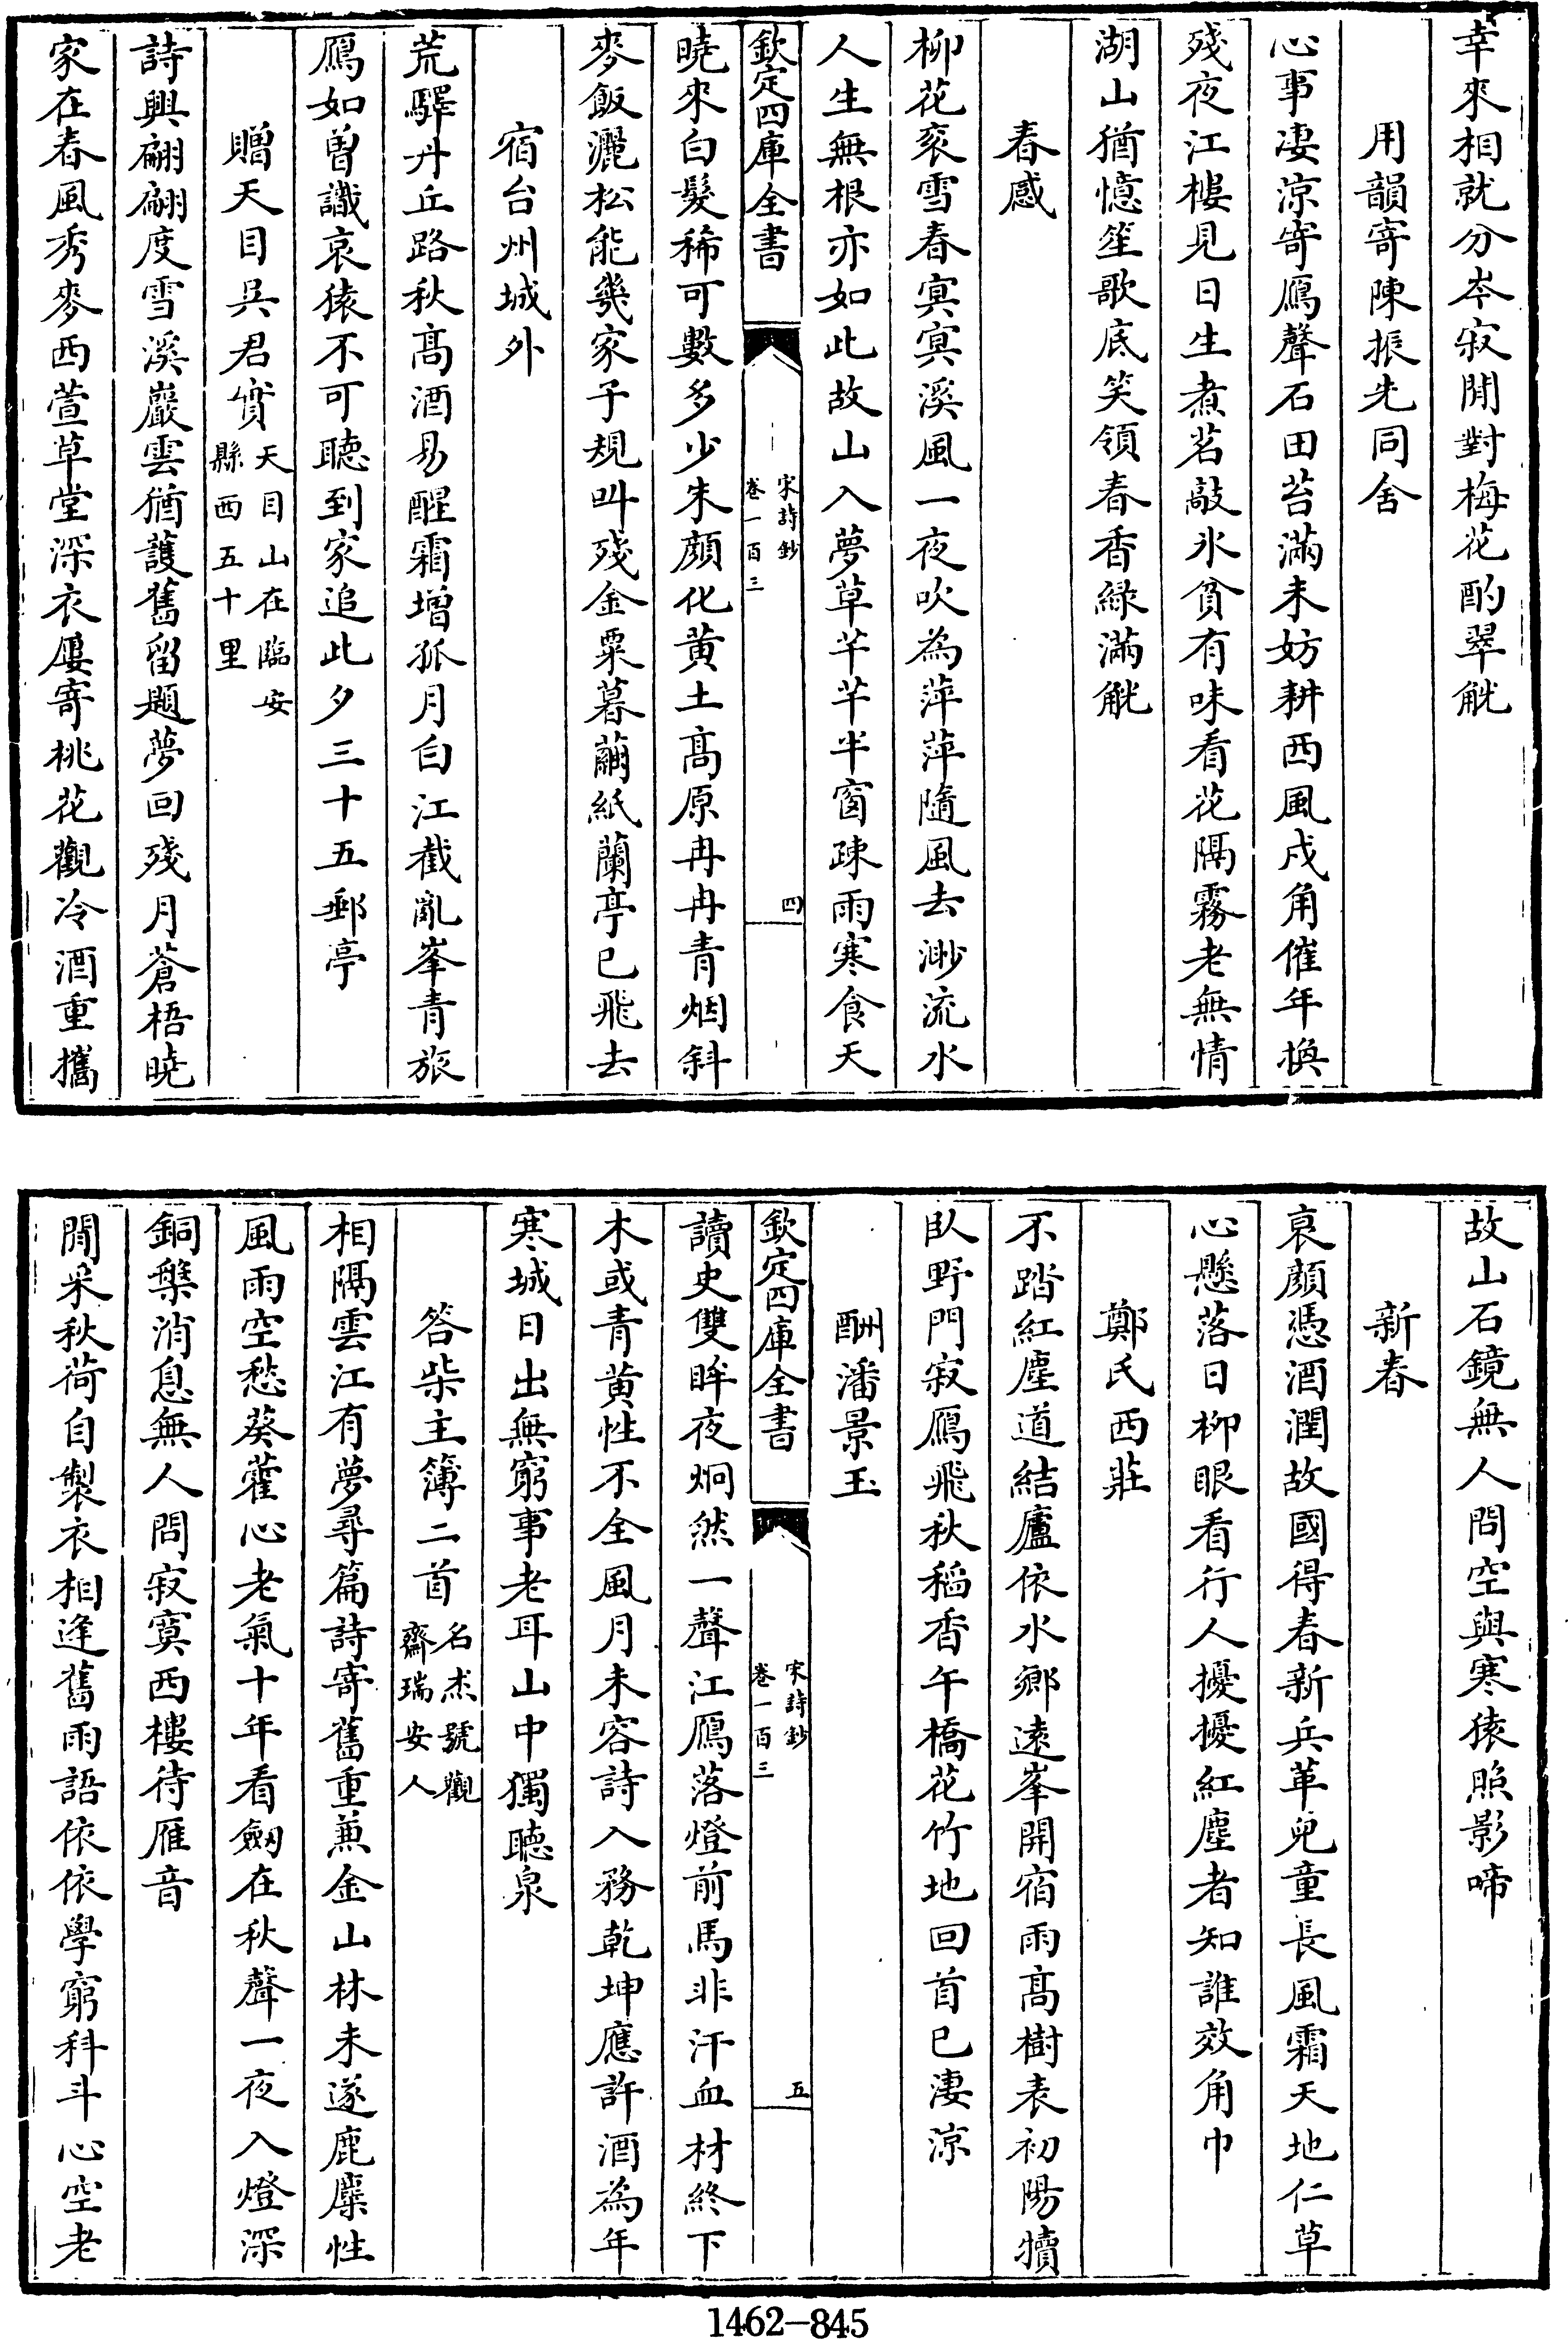 幸來相就分岑寂閒對梅花酌翠觥
用韻寄陳振先同舍
心事凄涼寄鴈聲石田苔滿未妨耕西風戍角催年換
殘夜江樓見日生煮茗敲氷貧有味看花隔霧老無情
湖山猶憶笙歌底笑領春香緑滿觥
春感
柳花衮雪春㝠㝠溪風一夜吹為萍萍隨風去渺流水
人生無根亦如此故山入夢草芊芊半窗疎雨寒食天
欽定四庫全書
宋詩鈔
卷一百三
四
曉來白髮稀可數多少朱顔化黄土髙原冉冉青烟斜
麥飯灑松能幾家子規呌殘金粟暮繭紙蘭亭已飛去
宿台州城外
荒驛丹丘路秋髙酒易醒霜增孤月白江截亂峯青旅
鴈如曽識哀猿不可聽到家追此夕三十五郵亭
贈天目吳君實天目山在臨安
縣西五十里
詩興翩翩度雪溪巖雲猶護舊留題夢回殘月蒼梧曉
家在春風秀麥西萱草堂深衣屢寄桃花觀冷酒重攜
故山石鏡無人問空與寒猿照影啼
新春
衰顔憑酒潤故國得春新兵革兒童長風霜天地仁草
心懸落日柳眼看行人擾擾紅塵者知誰效角巾
鄭氏西莊
不踏紅塵道結廬依水鄉逺峯開宿雨髙樹表初陽犢
臥野門寂鴈飛秋稻香午橋花竹地回首已淒涼
酬潘景玉
欽定四庫全書
宋詩鈔
卷一百三
五
讀史雙眸夜炯然一聲江鴈落燈前馬非汗血材終下
木或青黄性不全風月未容詩入務乾坤應許酒為年
寒城日出無窮事老耳山中獨聽泉
答柴主簿二首名杰號觀
齋瑞安人
相隔雲江有夢尋篇詩寄舊重兼金山林未遂鹿麋性
風雨空愁葵藿心老氣十年看劒在秋聲一夜入燈深
銅槃消息無人問寂寞西樓待雁音
閒采秋荷自製衣相逢舊雨語依依學窮科斗心空老
1462-845